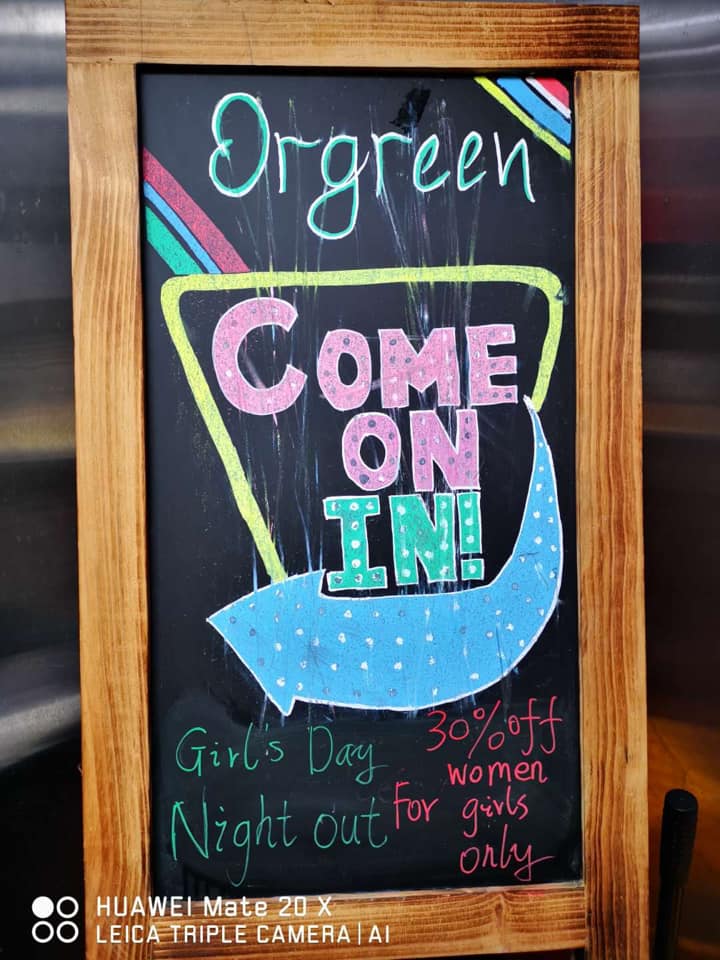 Orgreen
COME
ON
IN!
Girl's Day
Night out
30% off
women
For girls
only
HUAWEI Mate 20 X
LEICA TRIPLE CAMERA | AI